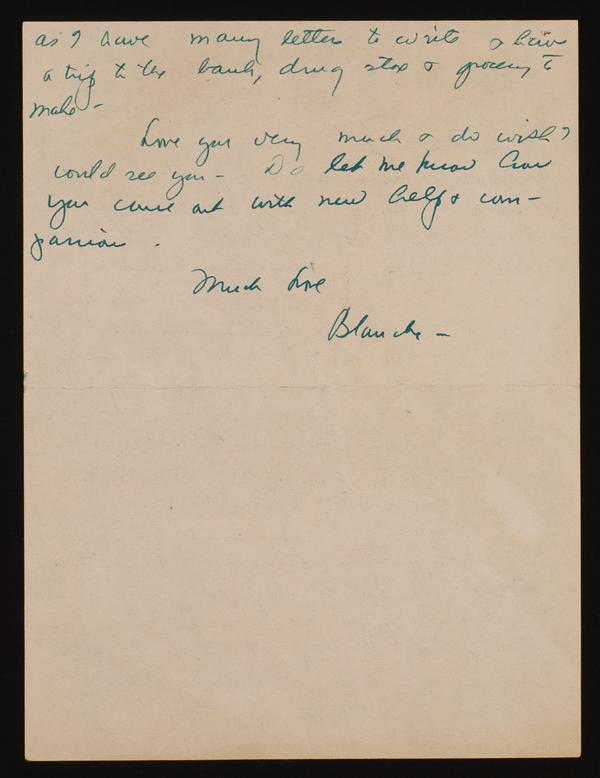 as I have many letters to write & have
a trip to the bank, drug store & grocery to
make -
Love you very much & do wish I
could see you - Do let me know how
you came out with new help & com-
panion .
Much Love
Blanche -